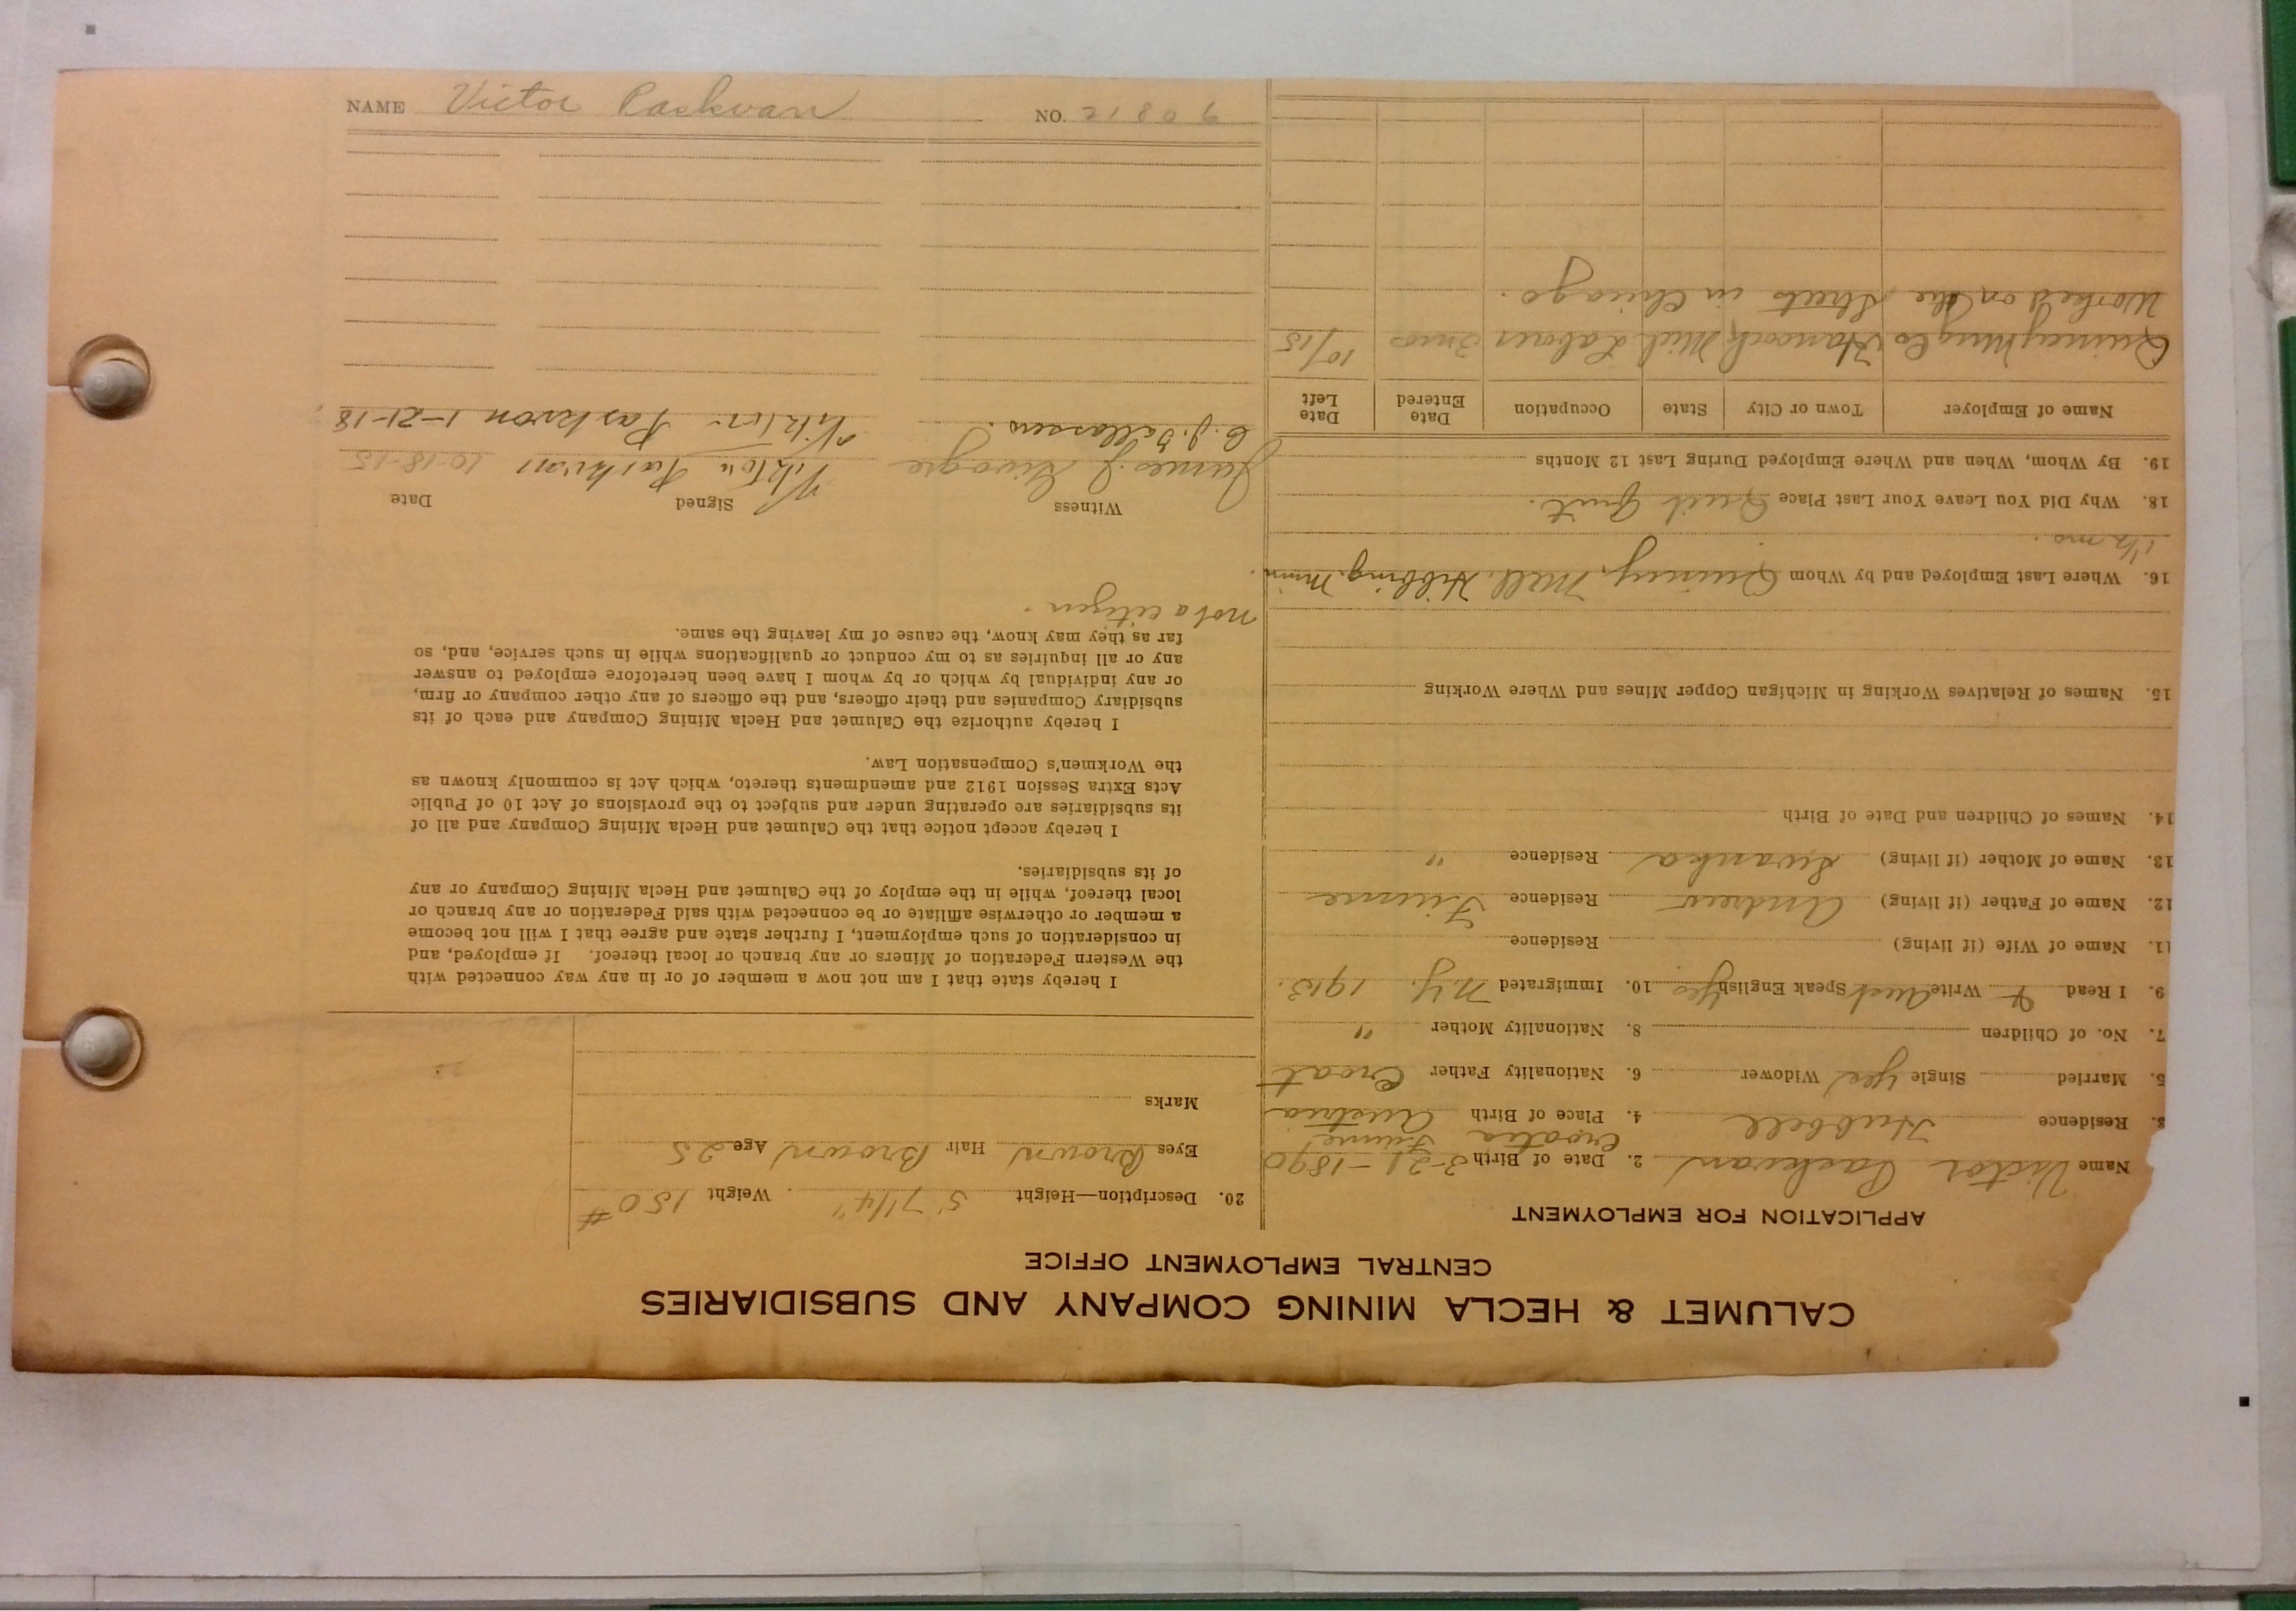 CALUMET & HECLA MINING COMPANY AND SUBSIDIARIES
CENTRAL EMPLOYMENT OFFICE
APPLICATION FOR EMPLOYMENT
Name Victor Paskvan 2. Date of Birth 3-21-1890
Croatia Fiume
3. Residence Hubbell 4. Place of Birth Austria
5. Married Single Yes Widower 6. Nationality Father Croat
7. No. of Children 8. Nationality Mother "
9. I Read & Write Aust Speak English Yes 10. Immigrated N.Y. 1913.
11. Name of Wife (if living) Residence
12. Name of Father (if living) Andrew Residence Fiume
13. Name of Mother (if living) Residence "
14. Names of Children and Date of Birth
15. Names of Relatives Working in Michigan Copper Mines and Where Working
16. Where Last Employed and by Whom Quincy Mill. Hibbing, Minn.
1 1/2 mo.
18. Why Did You Leave Your Last Place Quit Quit.
19. By Whom, When and Where Employed During Last 12 Months
Name of Employer Town or City State Occupation Date Entered Date Left
Quincy Mng Co Hancock Mich Laborer 3 mos 10/15
Worked on the streets in Chicago.
20. Description—Height 5' 7 1/4" Weight 150 #
Eyes Brown Hair Brown Age 25
Marks
I hereby state that I am not now a member of or in any way connected with
the Western Federation of Miners or any branch or local thereof. If employed, and
in consideration of such employment, I further state and agree that I will not become
a member or otherwise affiliate or be connected with said Federation or any branch or
local thereof, while in the employ of the Calumet and Hecla Mining Company or any
of its subsidiaries.
I hereby accept notice that the Calumet and Hecla Mining Company and all of
its subsidiaries are operating under and subject to the provisions of Act 10 of Public
Acts Extra Session 1912 and amendments thereto, which Act is commonly known as
the Workmen's Compensation Law.
I hereby authorize the Calumet and Hecla Mining Company and each of its
subsidiary Companies and their officers, and the officers of any other company or firm,
or any individual by which or by whom I have been heretofore employed to answer
any or all inquiries as to my conduct or qualifications while in such service, and, so
far as they may know, the cause of my leaving the same.
not a citizen.
Witness Signed Date
James J. Viktor Paskvan 10-18-15
C. J. Viktor Paskvan 1-21-18
NAME Victor Paskvan NO. 21806